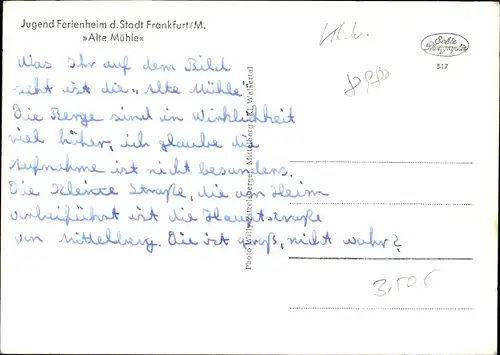 Jugend Ferienheim d. Stadt Frankfurt/M.
»Alte Mühle«
Echte Photographie
517
Was Ihr auf dem Bild
seht ist die "Alte Mühle"
Die Berge sind in Wirklichkeit
viel höher, ich glaube die
Aufnahme ist nicht besonders.
Die kleine Straße, die am Heim
vorbeiführt ist die Hauptstraße
von Mittelberg. Die ist groß, nicht wahr?
Photo Willy Mittelberg Kl. Walsertal
3,50 €